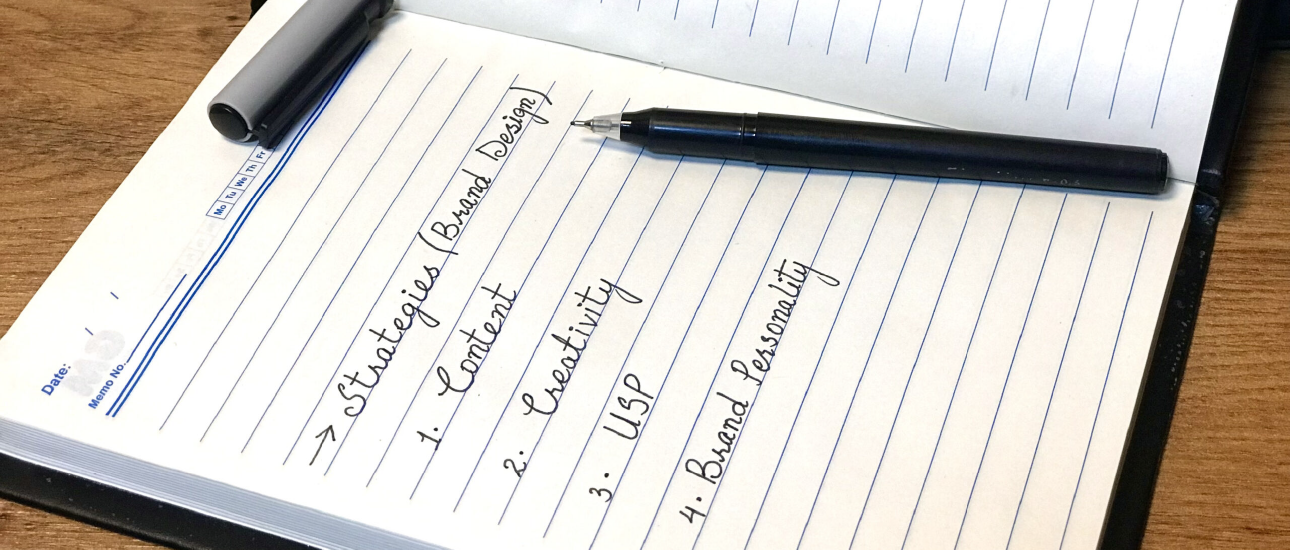 Date: / /
Memo No.
Mo Tu We Th Fr
→ Strategies (Brand Design)
1. Content
2. Creativity
3. USP
4. Brand Personality